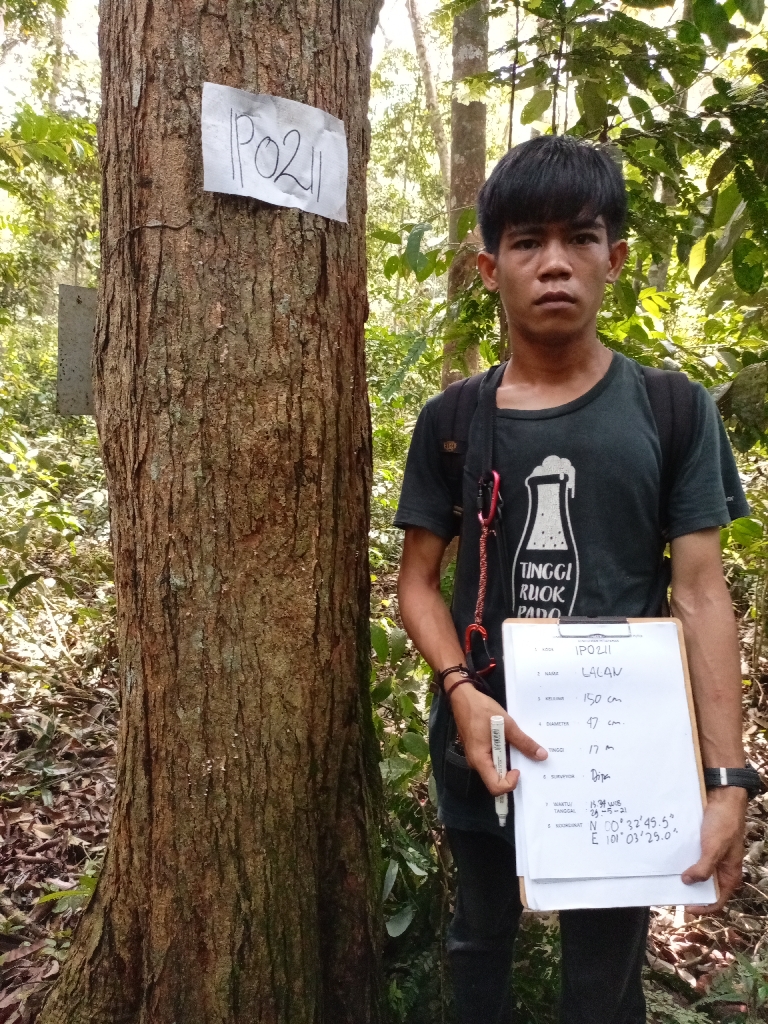 IPO211
TINGGI
RUOK
PADO
1. KODE : IPO211
2. NAMA : LALAN
3. KELILING : 150 cm
4. DIAMETER : 47 cm
5. TINGGI : 17 m
6. SURVEYOR :
7. WAKTU/ : 13.34 WIB
TANGGAL : 29-5-21
8. KOORDINAT N 00° 32' 45.5"
E 101° 03' 25.0"